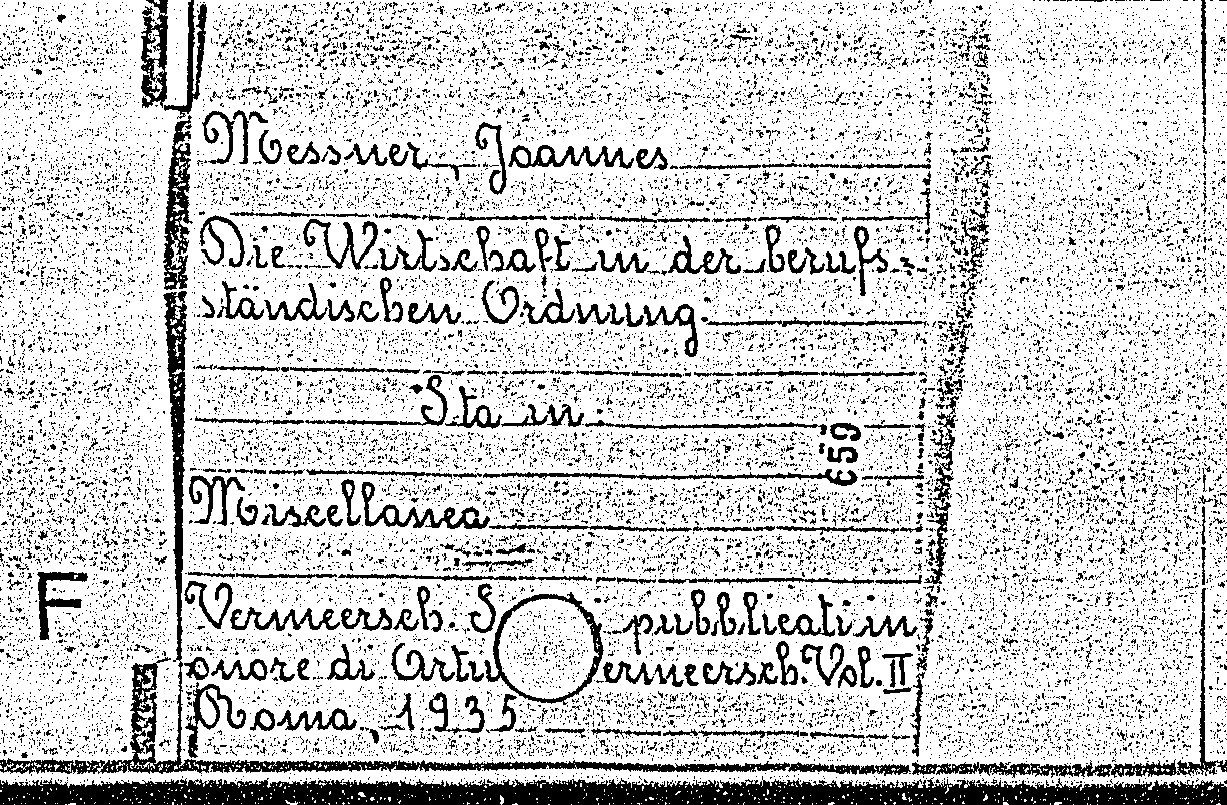 Messner, Joannes
Die Wirtschaft in der berufs=
ständischen Ordnung.
Sta in:
659
Miscellanea
F
Vermeersch. S pubblicati in
onore di Artu ermeersch. Vol. II
Roma, 1935